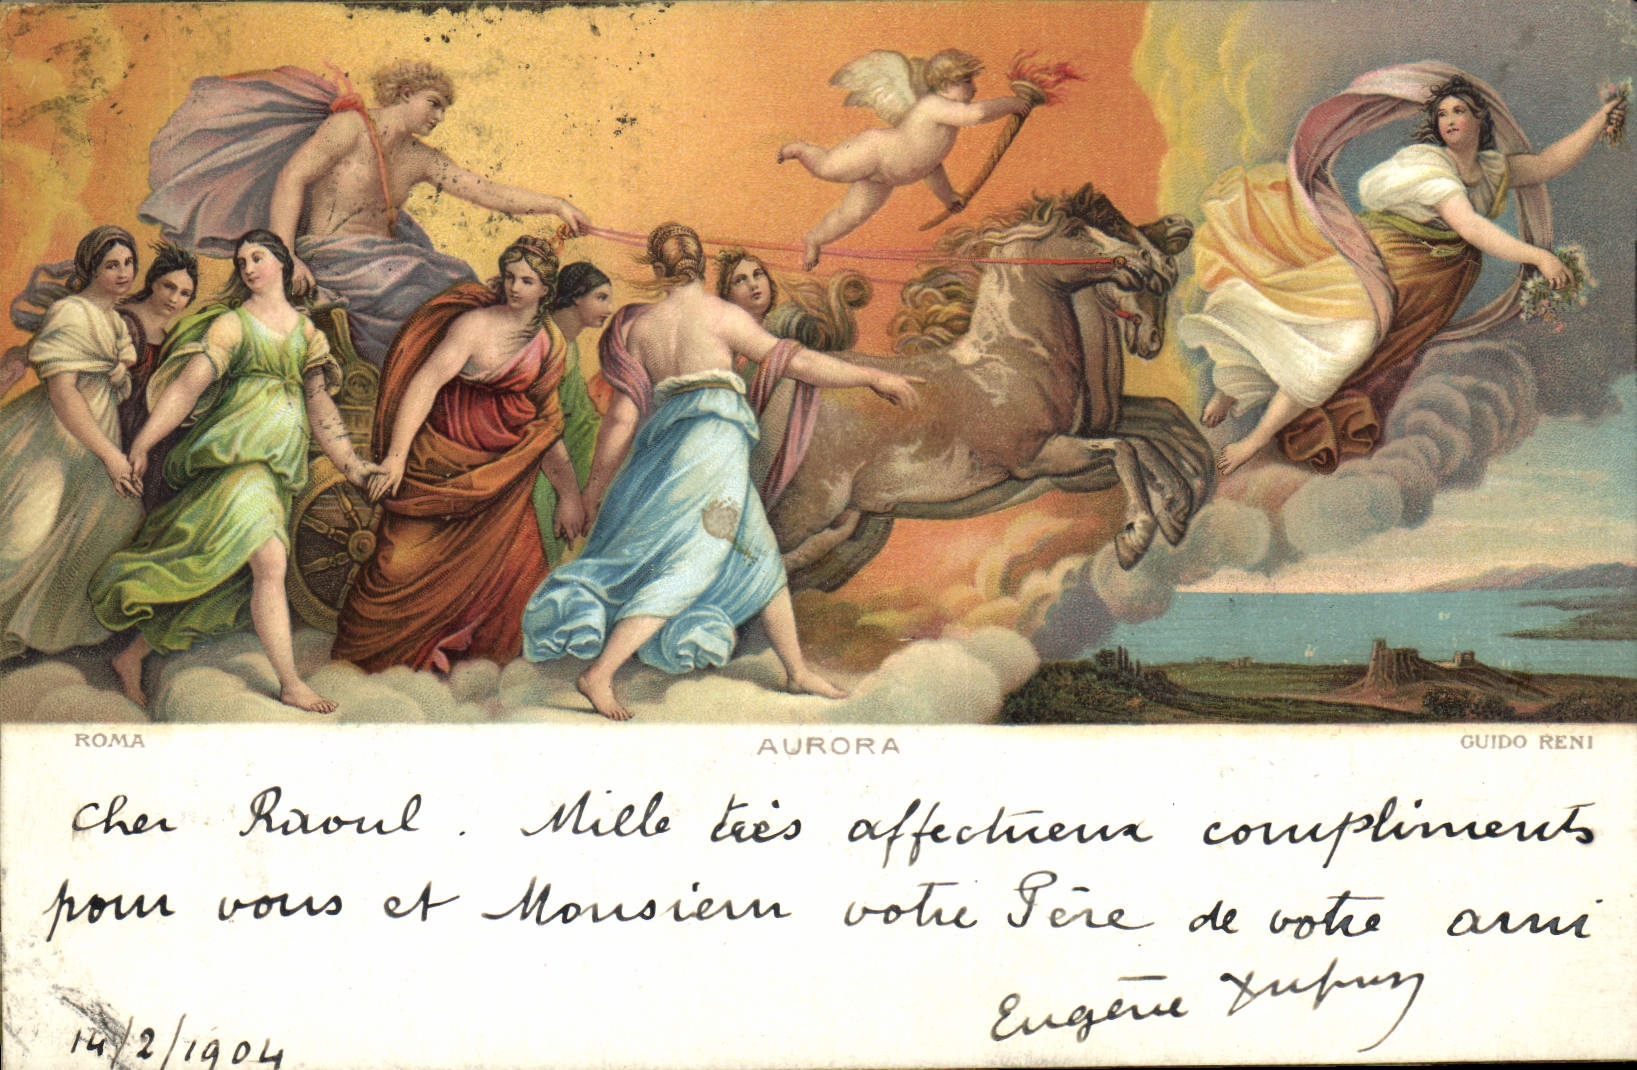 ROMA AURORA GUIDO RENI
Cher Raoul. Mille très affectueux compliments
pour vous et Monsieur votre Père de votre ami
Eugène Dupuy
14/2/1904